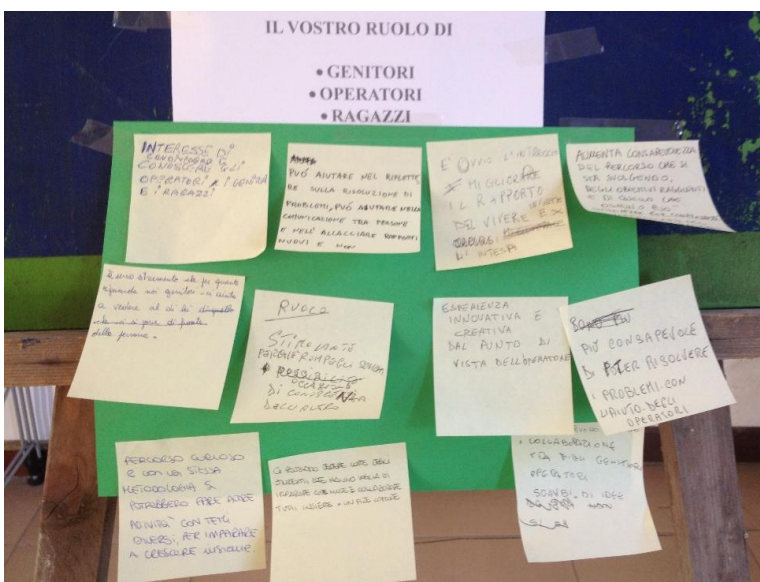 IL VOSTRO RUOLO DI
• GENITORI
• OPERATORI
• RAGAZZI
INTERESSE DI
CONOSCERE GLI
OPERATORI I GENITORI
E I RAGAZZI
PUÒ AIUTARE NEL RIFLETTE
RE SULLA RISOLUZIONE DI
PROBLEMI, PUÒ AIUTARE NELLA
COMUNICAZIONE TRA PERSONE
E NELL'ALLACCIARE RAPPORTI
NUOVI E NON
E' OVVIO
MIGLIORARE
IL RAPPORTO
DEL VIVERE E
L'INTESA
AUMENTA CONSAPEVOLEZZA
DEL PERCORSO CHE SI
STA SVOLGENDO,
DEGLI OBIETTIVI RAGGIUNTI
E DI QUELLO CHE
È uno strumento che per quanto
riguarda noi genitori ci aiuta
a vedere al di là di quello
che ci si pone di fronte
delle persone.
RUOLO
STIMOLANTE
PERCHÉ ROMPE GLI SCHEMI
OCCASIONE
DI CONOSCENZA
DELL'ALTRO
ESPERIENZA
INNOVATIVA E
CREATIVA
DAL PUNTO DI
VISTA DELL'OPERATORE
PIÙ CONSAPEVOLE
DI POTER RISOLVERE
I PROBLEMI CON
L'AIUTO DEGLI
OPERATORI
PERCORSO CURIOSO
E CON LA STESSA
METODOLOGIA SI
POTREBBERO FARE ALTRE
ATTIVITÀ CON TEMI
DIVERSI, PER IMPARARE
A CRESCERE INSIEME.
CI POSSONO ESSERE
STUDENTI, CHE HANNO VOGLIA DI
IMPARARE COSE NUOVE E COLLABORARE
TUTTI INSIEME A UN FINE COMUNE
COLLABORAZIONE
TRA GENITORI
OPERATORI
SCAMBI DI IDEE